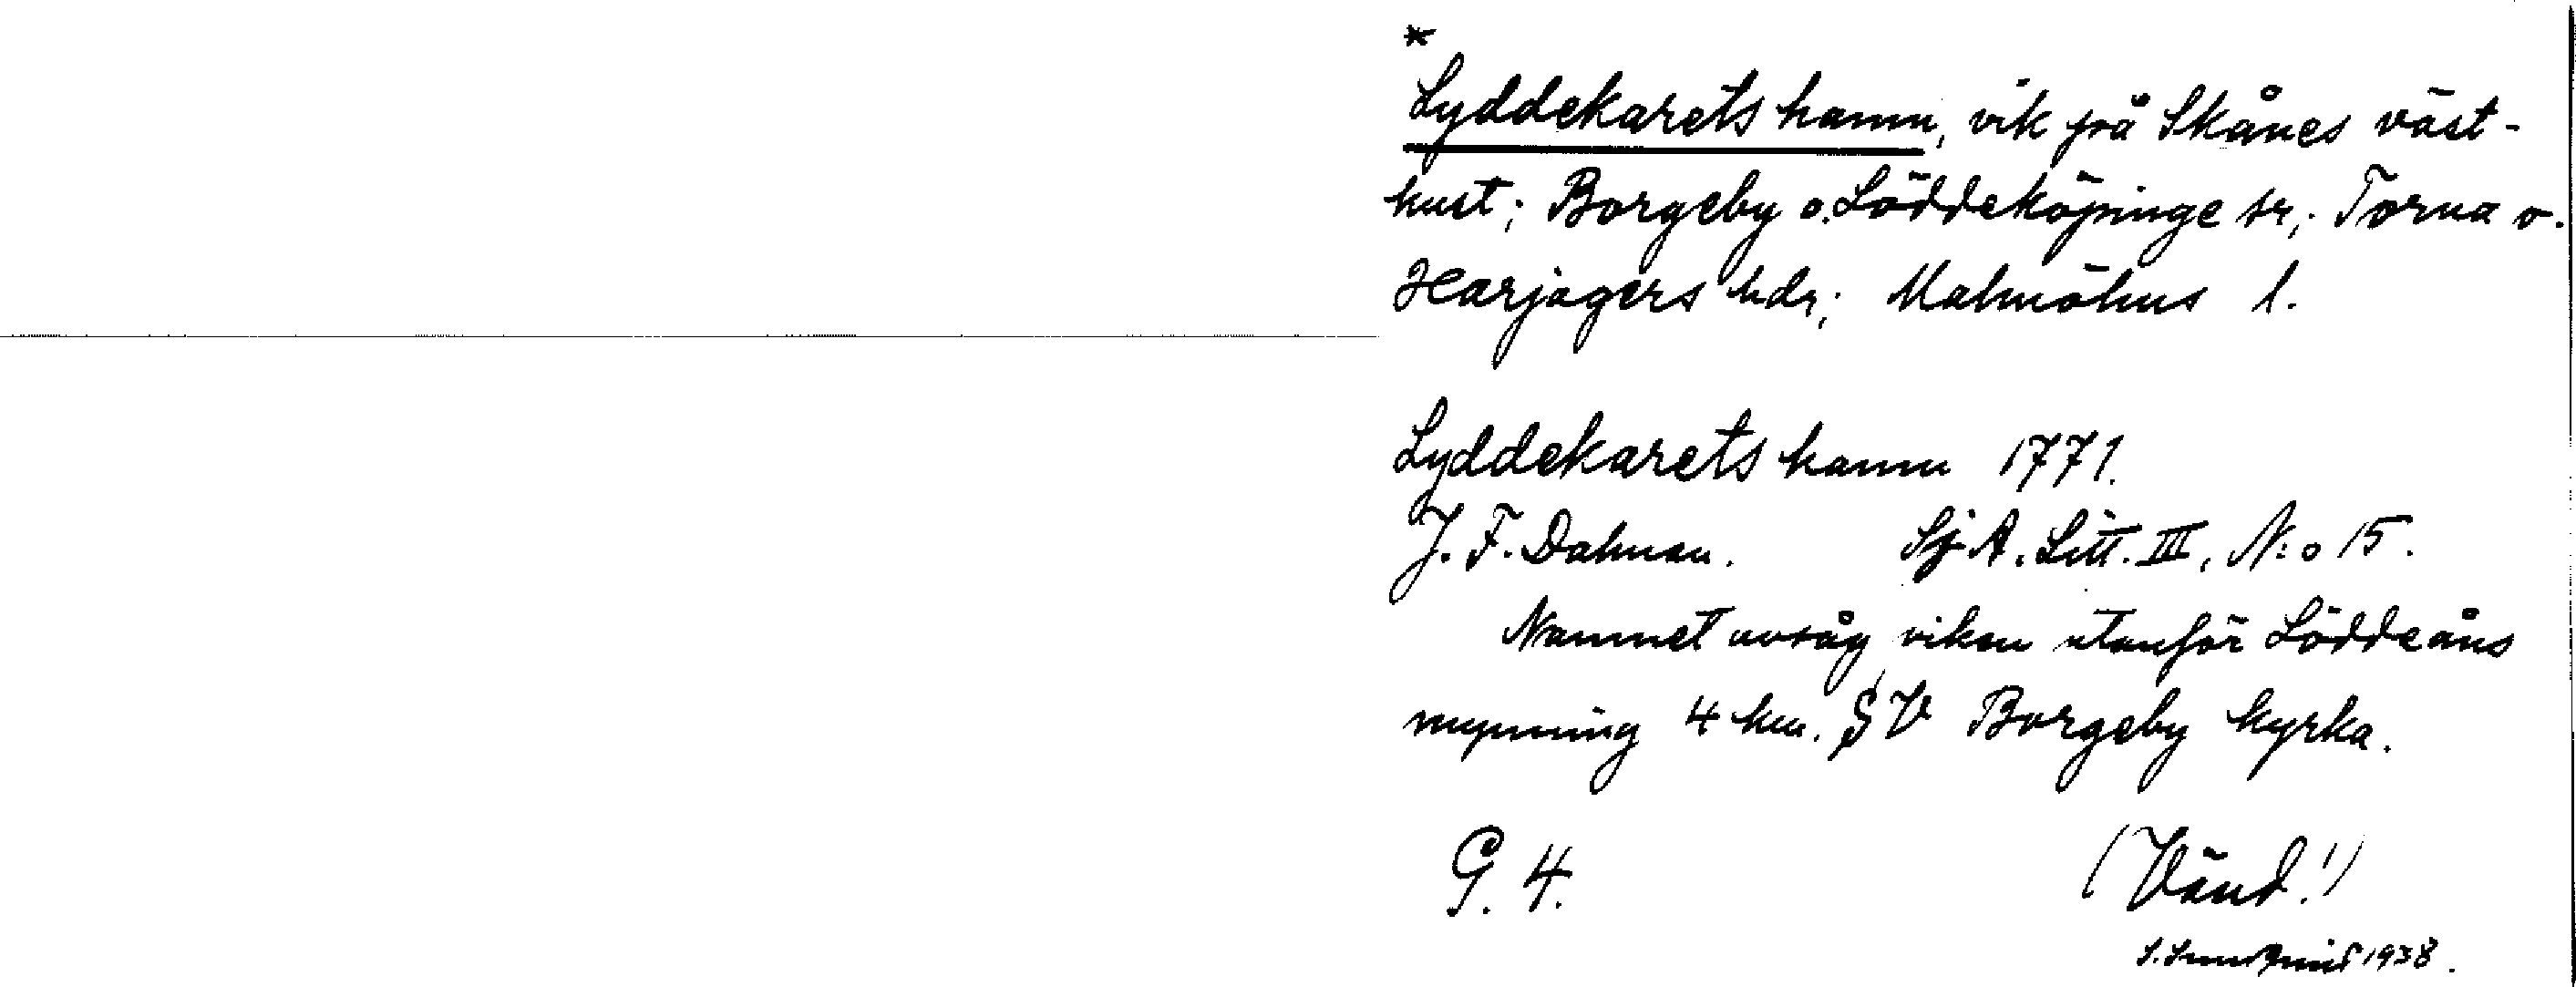 *
Lyddekarets hamn, vik på Skånes väst-
kust; Borgeby o. Löddeköpinge sr; Torna o.
Harjagers hdr; Malmöhus l.
Lyddekarets hamn 1771.
J. F. Dalman. SjA. Litt. III, N:o 15.
Namnet avsåg viken utanför Löddeåns
mynning 4 km. SV Borgeby kyrka.
G. 4. (Vänd!)
1938.